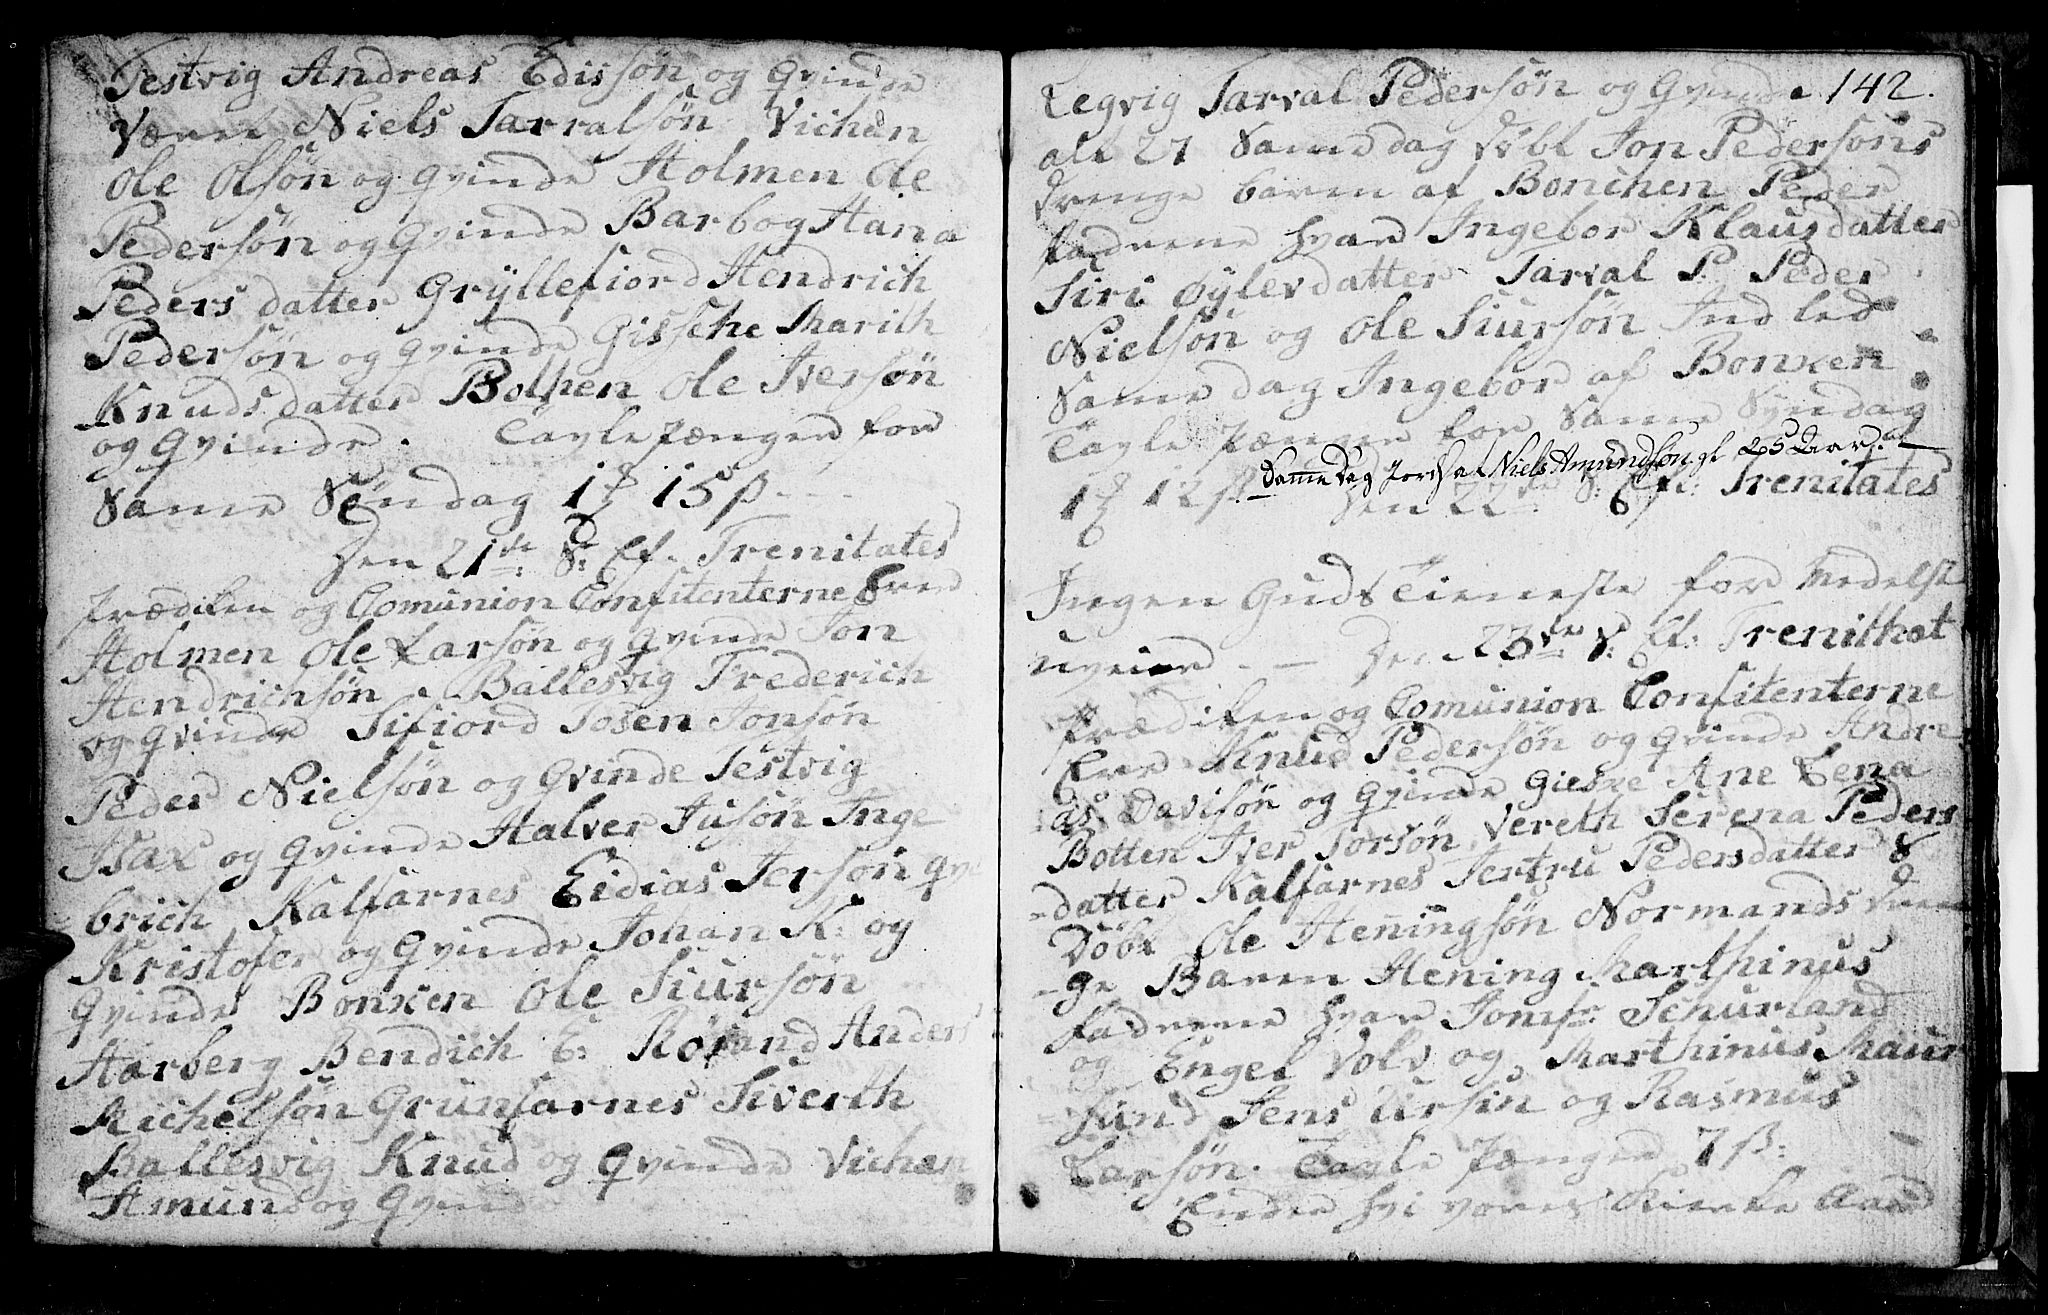 Testvig Andreas Edissøn og Qvinde
Været Niels Tarralsøn Vichan
Ole Olsøn og Qvinde Holmen Ole
Pedersøn og Qvinde Barbog Hana
Peders datter Gryllefiord Hendrich
Pedersøn og Qvinde Gissehe Marith
Knuds datter Bothen Ole Iversøn
og Qvinde. Tavle pænger for
Same Søndag 1 15 β
Den 21de S: Ef. Trenitates
Prædiken og Comunion Confitenterne Ere
Holmen Ole Larsøn og Qvinde Jon
Hendrichsøn Ballesvig Frederich
og Qvinde Sifiord Josen Jonsøn
Peder Nielsøn og Qvinde Testvig
Isax og Qvinde Halver Jusøn Inge
brich Kalfarnes Eidias Jersøn
Kristofer og Qvinde Johan K: og
Qvinde Bonken Ole Siursøn
Harberg Bendich E: Anders
Michelsøn Grunfarnes Siverth
Ballesvig Knud og Qvinde Vichan
Amund og Qvind
142.
Legvig Tarval Pedersøn og Qvinde
alt 27 Same dag Døbt Jon Pedersøns
Drenge barn af Bonchen Peder
fadrene hvar Ingebor Klausdatter
Siri Øylevdatter Tarval P. Peder
Nielsøn og Ole Siursøn Ind led
Same dag Ingebor af Bonken
Tavle pænger for Same Syndag
Samme Dag Niels Amundsøn gl 25 Aar.
1 12 β Den 22de S: Ef: Trenitates
Ingen Guds Tieneste for Medelst
uveier. — Den 23de S: Ef: Trenithat
Prædiken og Comunion Confitenterne
Ere Knud Pedersøn og Qvinde Andre
as Davisøn og Qvinde Giesve Ane Lena
Botten Iver Torsøn, Vereth Serena Peders
-datter Kalfarnes Jertru Pedersdatter 8
Døbt Ole Heningsøn Normands Dren
-ge Baren Hening Marthinus
fadrene hvar Jomfr: Schurland
og Engel Volv og Marthinus Maur
fund Jens Ursin og Rasmus
Larsøn. Tavle Pænger 7 β:
Ender hvi vores Kierke Aar